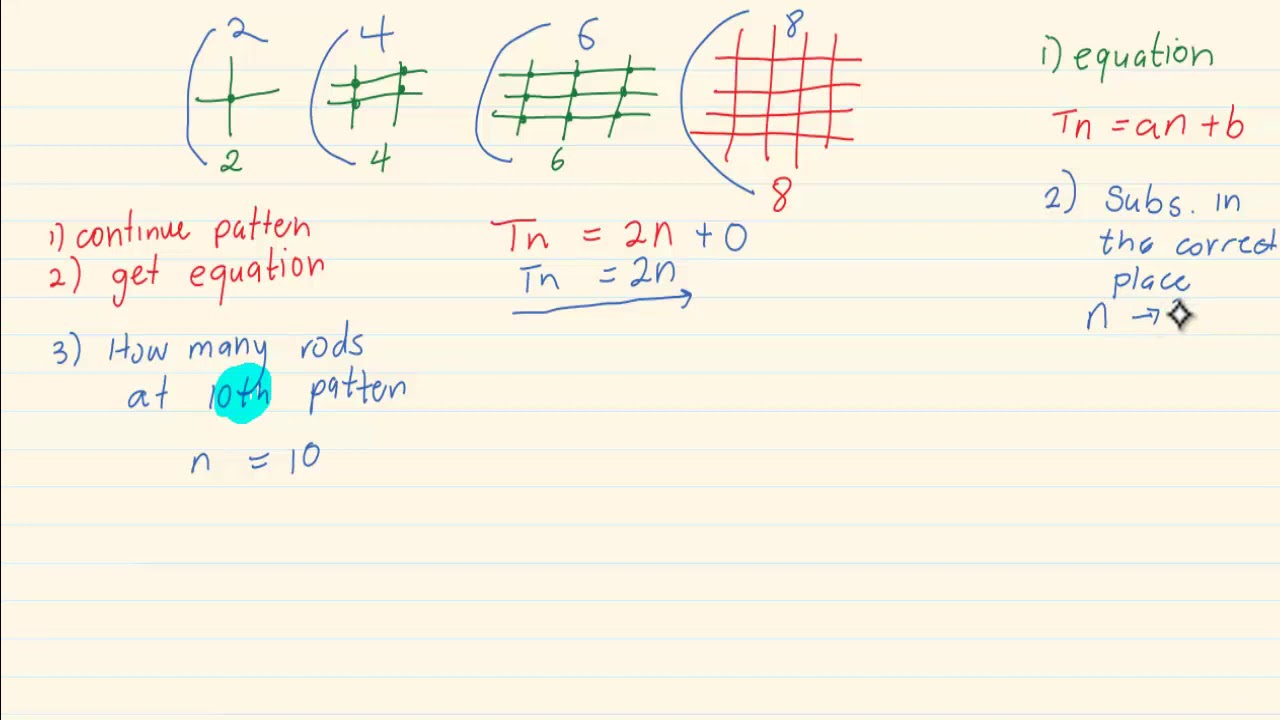 2 4 6 8
2 4 6 8
1) equation
Tn = an + b
2) Subs. in
the correct
place
n →
1) continue patten
2) get equation
Tn = 2n + 0
Tn = 2n
3) How many rods
at 10th patten
n = 10